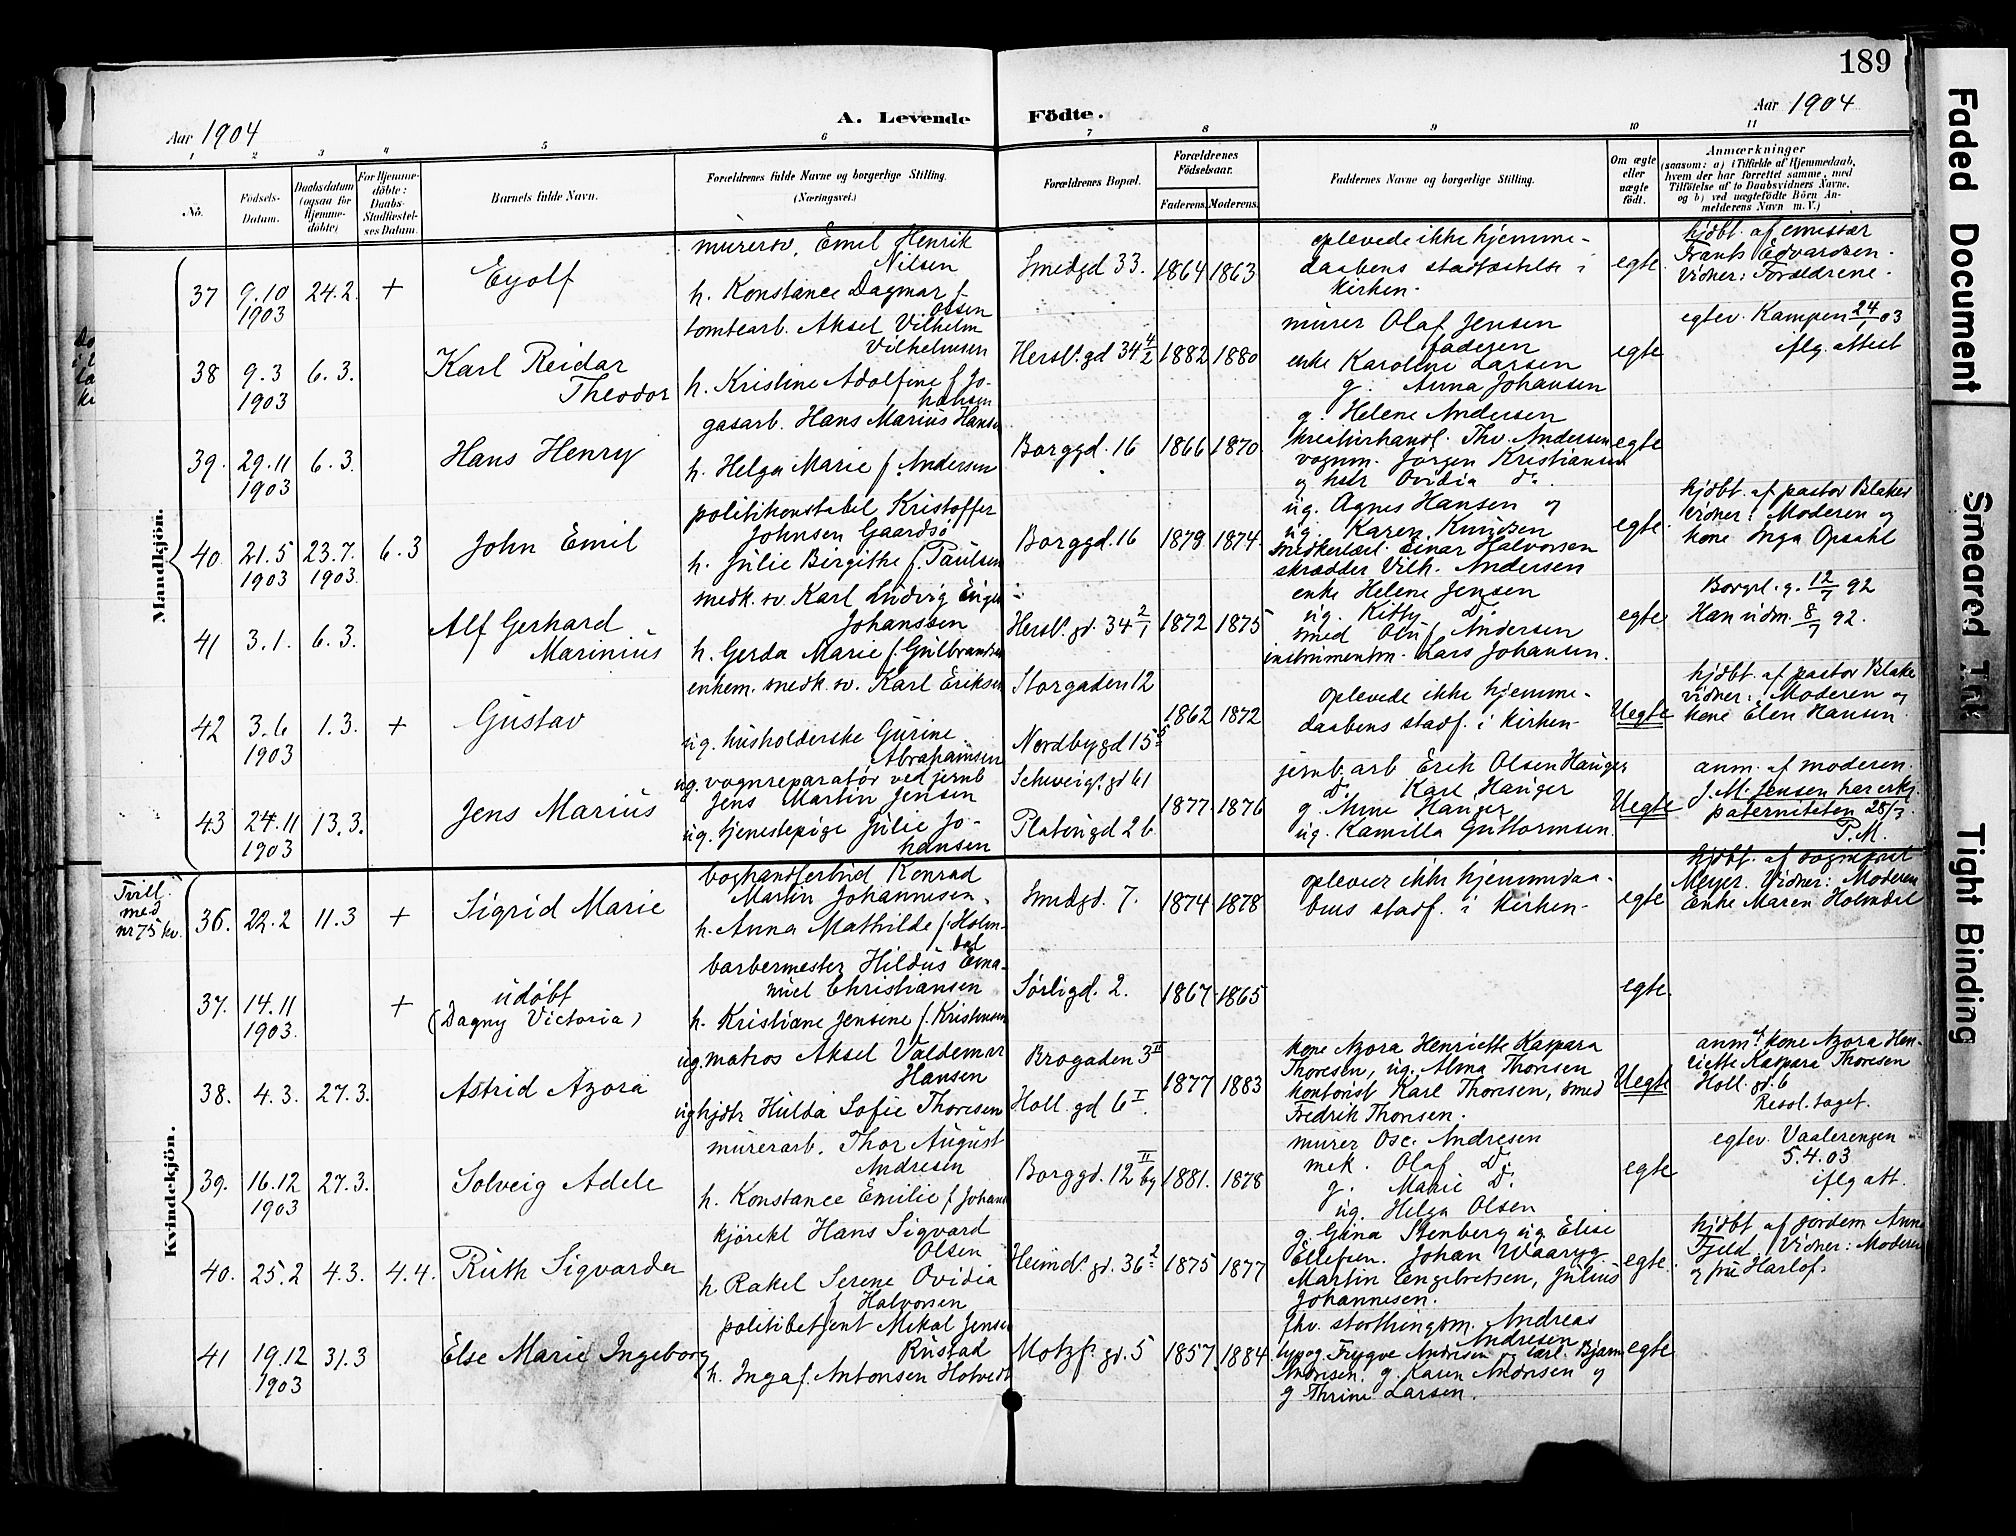 189
Aar 1904
A. Levende Födte.
Aar 1904
1 2 3 4 5 6 7 8 9 10 11
No.
Födsels-Datum.
Daabsdatum (ogsaa for Hjemme-döbte)
For Hjemme-döbte: Daabs-Stadfæstel-ses Datum.
Barnets fulde Navn.
Forældrenes fulde Navne og borgerlige Stilling.
(Næringsvei.)
Forældrenes Bopæl.
Forældrenes Födselsaar.
Faderens. Moderens.
Faddernes Navne og borgerlige Stilling.
Om ægte eller uægte födt.
Anmærkninger
(saasom: a) i Tilfælde af Hjemmedaab,
hvem der har forrettet samme, med
Tilföielse af to Daabsvidners Navne,
og b) ved uægtefödte Börn An-
melderens Navn m. V.)
Mandkjön.
37 9.10 1903 24.2. + Eyolf
murersv. Emil Henrik
Nilsen
h. Konstance Dagmar f.
Olsen
Smedgd 33. 1864 1863
oplevede ikke hjemme-
daabens stadfæstelse i
kirken.
egte
hjdbt. af emissær
Frants Edvardsen.
Vidner: Forældrene.
38 9.3 1903 6.3. Karl Reidar
Theodor
tomtearb. Aksel Vilhelm
Vilhelmsen
h. Kristine Adolfine f. Jo-
hansen
Hersl. gd 34 4/2 1882 1880
murer Olaf Jensen
faderen
enke Karoline Larsen
g. Anna Johansen
g. Helene Andersen
egte
egtev. Kampen 24/1 03
iflg. attest
39. 29.11 1903 6.3. Hans Henry
gasarb. Hans Marius Hansen
h. Helga Marie f. Andersen
Borggd. 16 1866 1870
kreaturhandl. Thv. Andersen
vognm. Jørgen Kristiansen
og hstr Ovidia do.
ug. Agnes Hansen og
egte
40. 21.5 1903 23.7. 1903. 6.3 John Emil
politikonstabel Kristoffer
Johnsen Gaardsø
h. Julie Birgithe f. Paulsen
Borggd. 16 1879 1874.
ug. Karen Knudsen
snedkerlærl. Einar Halvorsen
skrædder Vilh. Andersen
egte.
hjdbt. af pastor Blaker
Vidner: Moderen og
kone Inga Opsahl
41 3.1. 6.3. Alf Gerhard
Marinius
snedk. sv. Karl Ludvig Eugen
Johanssen
h. Gerda Marie f. Gulbrandsen
Hersl. gd. 34 2/1 1872 1875
enke Helene Jensen
ug. Kitty D.
smed Oluf Andersen
instrumentm. Lars Johansen.
egte
Borgl. g. 12/7 92
Han vidm. 8/7 92.
42 3.6 1903 1.3. + Gustav
enkem. snedk. sv. Karl Eriksen
ug. husholderske Gurine
Abrahamsen
Storgaden 12
Nordbygd 15 5
1862 1872
oplevede ikke hjemme-
daabens stadf. i kirken
Uegte
hjdbt. af pastor Blake
vidner: Moderen og
kone Elen Hansen.
43 24.11 1903 13.3. Jens Marius
ug. vognreparatør ved jernb
Jens Martin Jensen
ug. tjenestepige Julie Jo-
hansen
Schweigs. gd 61
Platougd 26
1877. 1876
jernb. arb Erik Olsen Hauger
D. Karl Hauger
g. Anne Hauger
ug. Kamilla Guttormsen
Uegte
anm. af moderen.
J. M. Jensen har erkj.
paterniteten 28/3.
P.M.
Kvindekjön.
Tvill.
med
nr 75 kv.
36. 22.2 11.3 + Sigrid Marie
boghandlerbud Konrad
Martin Johannesen.
h. Anna Mathilde f. Holm-
dal
Smedgd. 7. 1874 1878
oplever ikke hjemmedaa-
bens stadf. i kirken
egte
hjdbt. af sogneprest
Meyer. Vidner: Moderen
Enke Maren Holmdal
37. 14.11 1903. + udøbt
(Dagny Victoria)
barbermester Hildus Ema-
nuel Christiansen
h. Kristiane Jensine f. Kristensen
Sørligd. 2. 1867 1865
egte.
38. 4.3. 27.3. Astrid Azora
ug. matros Aksel Valdemar
Hansen
ug hjdtr Hulda Sofie Thoresen
Brogaden 3 II
Holl. gd 6 I.
1877 1883
kone Azora Henriette Kaspara
Thoresen, ug. Alma Thoresen
kontorist Karl Thoresen, smed
Fredrik Thoresen.
Uegte
anm. af kone Azora Hen-
riette Kaspara Thoresen
Holl. gd. 6
Resol. taget.
39. 16.12 1903 27.3. Solveig Adele
murerarb. Thor August
Andresen
h. Konstance Emilie f. Johans
Borggd. 12 II bg 1881. 1878
murer Osc. Andresen
mek. Olaf D.
g. Marie D.
ug. Helga Olsen
egte
egtev. Vaalerengen
5.4.03
iflg att.
40. 25.2 4.3. 4.4. Ruth Sigvarda
kjørekl Hans Sigvard
Olsen
h. Rakel Serene Ovidia
f. Halvorsen
Heimds. gd. 36 2 1875 1877
g. Gina Stenberg ug Elise
Ellefsen. Johan Waaryg.
Martin Engebretsen, Julius
Johannesen.
egte.
hjdbt af jordem Anna
Fjeld. Vidner: Moderen
og fru Harlof.
41 19.12 1903 31.3 Else Marie Ingeborg
politibetjent Mikal Jensen
Rustad
h. Inga f. Antonsen Hotvedt
Motzf. gd. 5 1857. 1884.
fhv. storthingsm. Andreas
Andresen
typog. Trygve Andresen og lærl. Bjarne
Andresen. g. Karen Andresen og
g Thrine Larsen.
egte
Faded Document
Smeared Ink
Tight Binding